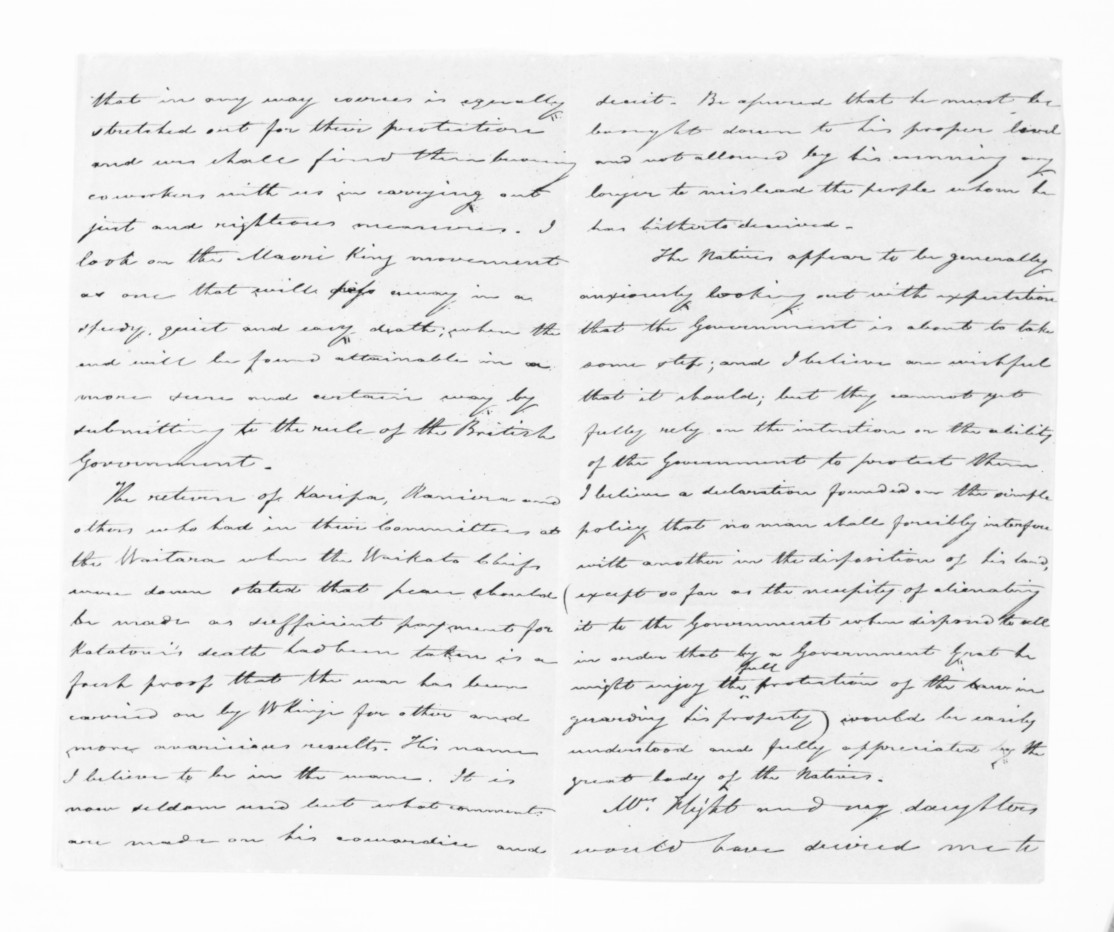 that in any way coerces is equally
stretched out for their protection
and we shall find them becoming
coworkers with us in carrying out
just and righteous measures. I
look on the Maori King movement
as one that will pass away in a
speedy, quiet and easy death; when the
end will be found attainable in a
more sure and certain way by
submitting to the rule of the British
Government.
The return of Karipa, Raniera and
others who had in their Committees at
the Waitara when the Waikato Chiefs
were down stated that peace should
be made as sufficient payment for
Katatore's death had been taken is a
fresh proof that the war has been
carried on by WKingi for other and
more avaricious results. His name
I believe to be in the wane. It is
now seldom used but what comments
are made on his cowardice and
deceit. Be assured that he must be
brought down to his proper level
and not allowed by his cunning any
longer to mislead the people whom he
has hitherto deceived.
The Natives appear to be generally
anxiously looking out with expectation
that the Government is about to take
some step; and I believe are wishful
that it should; but they cannot yet
fully rely on the intention or the ability
of the Government to protect them.
I believe a declaration founded on the simple
policy that no man shall forcibly interfere
with another in the disposition of his land,
(except so far as the necessity of alienating
it to the Government when disposed to sell
in order that by a Government Grant he
might enjoy the full protection of the law in
guarding his property) would be easily
understood and fully appreciated by the
great body of the Natives.
Mrs Flight and my daughters
would have desired me to